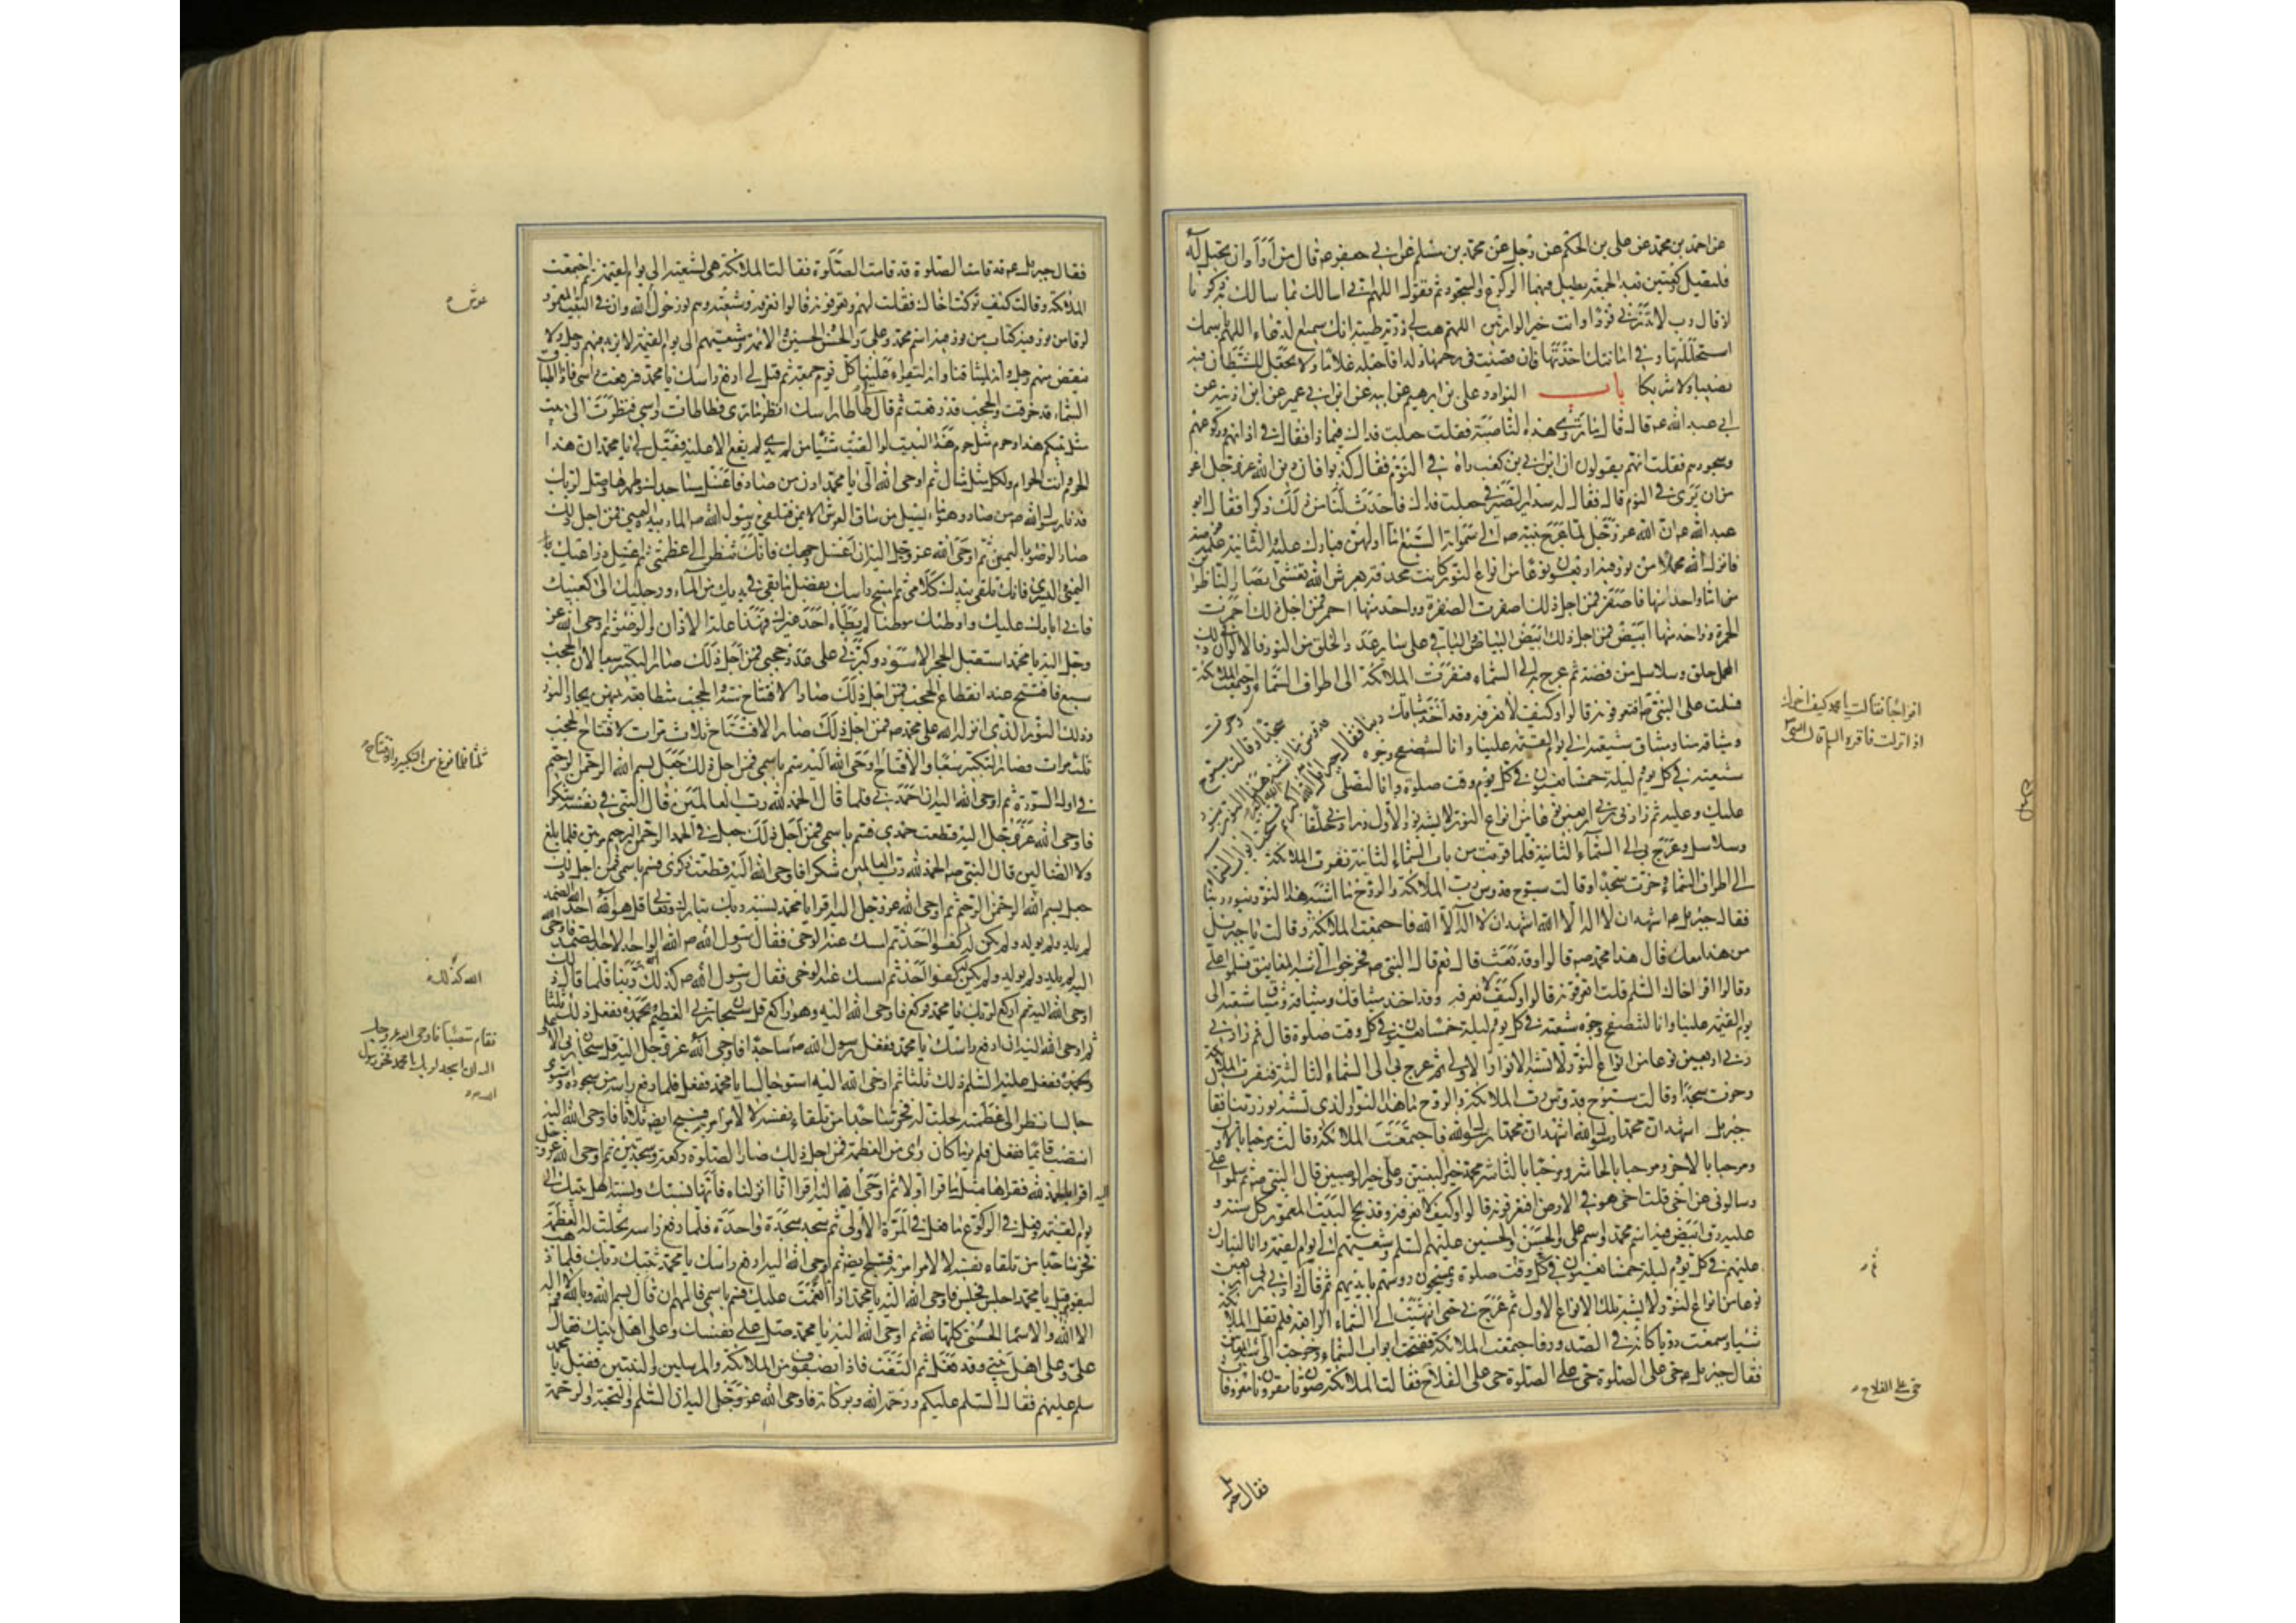 عن احمد بن محمد عن علی بن الحکم عن رجل عن محمد بن مسلم عن ابی جعفر ع قال من اراد ان یحبل له
فلیصل رکعتین بعد الجمعة یطیل فیهما الرکوع والسجود ثم یقول اللهم انی اسالک بما سالک به زکریا
اذ قال رب لا تذرنی فردا وانت خیر الوارثین اللهم هب لی ذریة طیبة انک سمیع الدعاء اللهم باسمک
استحللتها وفی امانتک اخذتها فان قضیت فی رحمها ولدا فاجعله غلاما ولا تجعل للشیطان فیه
نصیبا ولا شریکا باب النوادر علی بن ابرهیم عن ابیه عن ابن ابی عمیر عن ابن اذینة عن
ابی عبد الله ع قال قال ما تروی هذه الناصبة فقلت جعلت فداک فیما ذا فقال فی اذانهم ورکوعهم
وسجودهم فقلت انهم یقولون ان ابی بن کعب راه فی النوم فقال کذبوا فان دین الله عز وجل اعز
من ان یری فی النوم قال فقال له سدیر الصیرفی جعلت فداک فاحدث لنا من ذلک ذکرا فقال ابو
عبد الله ع ان الله عز وجل لما عرج بنبیه ص الی سمواته السبع اما اولهن فبارک علیه والثانیة علمه فرضه
فانزل الله محملا من نور فیه اربعون نوعا من انواع النور کانت محدقة بعرش الله تغشی ابصار الناظرین
اما واحد منها فاصفر فمن اجل ذلک اصفرت الصفرة وواحد منها احمر فمن اجل ذلک احمرت
الحمرة وواحد منها ابیض فمن اجل ذلک ابیض البیاض والباقی علی سایر عدد الخلق من النور والالوان فی ذلک
المحمل حلق وسلاسل من فضة ثم عرج به الی السماء فنفرت الملائکة الی اطراف السماء
وخرت سجدا وقالت سبوح قدوس ما اشبه هذا النور بنور ربنا فقال جبرئیل الله اکبر الله اکبر
ثم فتحت ابواب السماء واجتمعت الملائکة
فسلمت علی النبی ص
افواجا فقالت یا محمد کیف اخوک
اذا نزلت فاقره السلام قال النبی ص
افتعرفونه قالوا وکیف لا نعرفه وقد اخذ میثاقک
ومیثاقه منا ومیثاق شیعته الی یوم القیمة علینا وانا لنتصفح وجوه
شیعته فی کل یوم ولیلة خمسا یعنون فی کل یوم وقت صلوة وانا لنصلی
علیک وعلیه ثم زادنی ربی اربعین نوعا من انواع النور لا یشبه نور الاول وزادنی حلقا
وسلاسل وعرج بی الی السماء الثانیة فلما قربت من باب السماء الثانیة نفرت الملائکة
الی اطراف السماء وخرت سجدا وقالت سبوح قدوس رب الملائکة والروح ما اشبه هذا النور بنور ربنا
فقال جبرئیل ع اشهد ان لا اله الا الله اشهد ان لا اله الا الله فاجتمعت الملائکة وقالت یا جبرئیل
من هذا معک قال هذا محمد ص قالوا وقد بعث قال نعم قال النبی ص فخرجوا الی شبه المعانیق فسلموا علی
وقالوا اقرا اخاک السلم قلت اتعرفونه قالوا وکیف لا نعرفه وقد اخذ میثاقک ومیثاقه ومیثاق شیعته الی
یوم القیمة علینا وانا لنتصفح وجوه شیعته فی کل یوم ولیلة خمسا یعنون فی کل وقت صلوة قال ثم زادنی
ربی اربعین نوعا من انواع النور لا تشبه الانوار الاولی ثم عرج بی الی السماء الثالثة فنفرت الملائکة
وخرت سجدا وقالت سبوح قدوس رب الملائکة والروح ما هذا النور الذی یشبه نور ربنا فقال
جبرئیل اشهد ان محمدا رسول الله اشهد ان محمدا رسول الله فاجتمعت الملائکة وقالت مرحبا بالاول
ومرحبا بالاخر ومرحبا بالحاشر ومرحبا بالناشر محمد خیر النبیین وعلی خیر الوصیین قال النبی ص ثم سلموا علی
وسالونی عن اخی قلت اخی هو فی الارض افتعرفونه قالوا وکیف لا نعرفه وقد نحج البیت المعمور کل سنة و
علیه رق ابیض فیه اسم محمد واسم علی والحسن والحسین علیهم السلم وشیعتهم الی یوم القیمة وانا لنبارک
علیهم فی کل یوم ولیلة خمسا یعنون فی کل وقت صلوة ویمسحون رؤسهم بایدیهم ثم قال زادنی ربی اربعین
نوعا من انواع النور لا یشبه تلک الانواع الاول ثم عرج بی حتی انتهیت الی السماء الرابعة فلم تقل الملائکة
شیئا وسمعت دویا کانه فی الصدور فاجتمعت الملائکة ففتحت ابواب السماء وخرجت الی شبه المعانیق
فقال جبرئیل ع حی علی الصلوة حی علی الصلوة حی علی الفلاح فقالت الملائکة صوتان مقرونان معروفان
ثم
حی علی الفلاح
فقال جبرئیل
فقال جبرئیل ع قد قامت الصلوة قد قامت الصلوة فقالت الملائکة هی لشیعته الی یوم القیمة ثم اجتمعت
الملائکة وقالت کیف ترکت اخاک فقلت لهم وتعرفونه قالوا نعرفه وشیعته وهم نور حول الله وان فی البیت المعمور
عرش
لرقا من نور فیه کتاب من نور فیه اسم محمد وعلی والحسن والحسین والائمة وشیعتهم الی یوم القیمة لا یزید فیهم رجل ولا
ینقص منهم رجل وانه لمیثاقنا وانه لیقرا علینا کل یوم جمعة ثم قیل لی ارفع راسک یا محمد فرفعت راسی فاذا اطباق
السماء قد خرقت والحجب قد رفعت ثم قال لی طاطا راسک انظر ما تری فطاطات راسی فنظرت الی بیت
مثل بیتکم هذا وحرم مثل حرم هذا البیت لو القیت شیئا من یدی لم یقع الا علیه فقیل لی یا محمد ان هذا
الحرم وانت الحرام ولکل مثل مثال ثم اوحی الله الی یا محمد ادن من صاد فاغسل مساجدک وطهرها وصل لربک
فدنا رسول الله ص من صاد وهو ماء یسیل من ساق العرش الایمن فتلقی رسول الله ص الماء بیده الیمنی فمن اجل ذلک
صار الوضوء بالیمین ثم اوحی الله عز وجل الیه ان اغسل وجهک فانک تنظر الی عظمتی ثم اغسل ذراعیک
الیمنی والیسری فانک تلقی بیدک کلامی ثم امسح راسک بفضل ما بقی فی یدیک من الماء ورجلیک الی کعبیک
فانی ابارک علیک واوطئک موطئا لم یطاه احد غیرک فهذا علة الاذان والوضوء ثم اوحی الله عز
وجل الیه یا محمد استقبل الحجر الاسود وکبرنی علی عدد حجبی فمن اجل ذلک صار التکبیر سبعا لان الحجب
سبع فافتتح عند انقطاع الحجب فمن اجل ذلک صار الافتتاح سنة والحجب متطابقة بینهن بحار النور
وذلک النور الذی انزله الله علی محمد ص فمن اجل ذلک صار الافتتاح ثلاث مرات لافتتاح الحجب
ثلث مرات فصار التکبیر سبعا والافتتاح
ثلثا فلما فرغ من التکبیر والافتتاح
اوحی الله الیه سم باسمی فمن اجل ذلک جعل بسم الله الرحمن الرحیم
فی اول السورة ثم اوحی الله الیه ان احمدنی فلما قال الحمد لله رب العالمین قال النبی فی نفسه شکرا
فاوحی الله عز وجل الیه قطعت حمدی فسم باسمی فمن اجل ذلک جعل فی الحمد الرحمن الرحیم مرتین فلما بلغ
ولا الضالین قال النبی ص الحمد لله رب العالمین شکرا فاوحی الله الیه قطعت ذکری فسم باسمی فمن اجل ذلک
جعل بسم الله الرحمن الرحیم ثم اوحی الله عز وجل الیه اقرا یا محمد نسبة ربک تبارک وتعالی قل هو الله احد الله الصمد
لم یلد ولم یولد ولم یکن له کفوا احد ثم امسک عنه الوحی فقال رسول الله ص الله الواحد الاحد الصمد فاوحی
الیه لم یلد ولم یولد ولم یکن له کفوا احد ثم امسک عنه الوحی فقال رسول الله ص کذلک الله ربنا فلما قال ذلک
الله کذلک
اوحی الله الیه ثم ارکع لربک یا محمد فرکع فاوحی الله الیه وهو راکع قل سبحان ربی العظیم وبحمده ففعل ذلک ثلثا
ثم اوحی الله الیه ان ارفع راسک یا محمد ففعل رسول الله ص
فقام منتصبا فاوحی الله عز وجل
الیه ان اسجد لربک یا محمد فخر رسول
الله ص
ساجدا فاوحی الله عز وجل الیه قل سبحان ربی الاعلی
وبحمده ففعل علیه السلم ذلک ثلثا ثم اوحی الله الیه استو جالسا یا محمد ففعل فلما رفع راسه من سجوده واستوی
جالسا نظر الی عظمته تجلت له فخر ساجدا من تلقاء نفسه لا لامر امر به فسبح ایضا ثلاثا فاوحی الله الیه
انتصب قائما ففعل فلم یر ما کان رای من العظمة فمن اجل ذلک صار الصلوة رکعة وسجدتین ثم اوحی الله عز وجل
الیه اقرا بالحمد لله فقراها مثل ما قرا اولا ثم اوحی الله الیه اقرا انا انزلناه فانها نسبتک ونسبة اهل بیتک الی
یوم القیمة وفعل فی الرکوع ما فعل فی المرة الاولی ثم سجد سجدة واحدة فلما رفع راسه تجلت له العظمة
فخر ساجدا من تلقاء نفسه لا لامر امر به فسبح ایضا ثم اوحی الله الیه ارفع راسک یا محمد ثبتک ربک فلما ذهب
لیقوم قیل یا محمد اجلس فجلس فاوحی الله الیه یا محمد اذا انعمت علیک فسم باسمی فالهم ان قال بسم الله وبالله ولا اله
الا الله والاسماء الحسنی کلها لله ثم اوحی الله الیه یا محمد صل علی نفسک وعلی اهل بیتک فقال
علی وعلی اهل بیتی وقد فعل ثم التفت فاذا بصفوف من الملائکة والمرسلین والنبیین فقیل یا محمد
سلم علیهم فقال السلم علیکم ورحمة الله وبرکاته فاوحی الله عز وجل الیه ان السلم والتحیة والرحمة